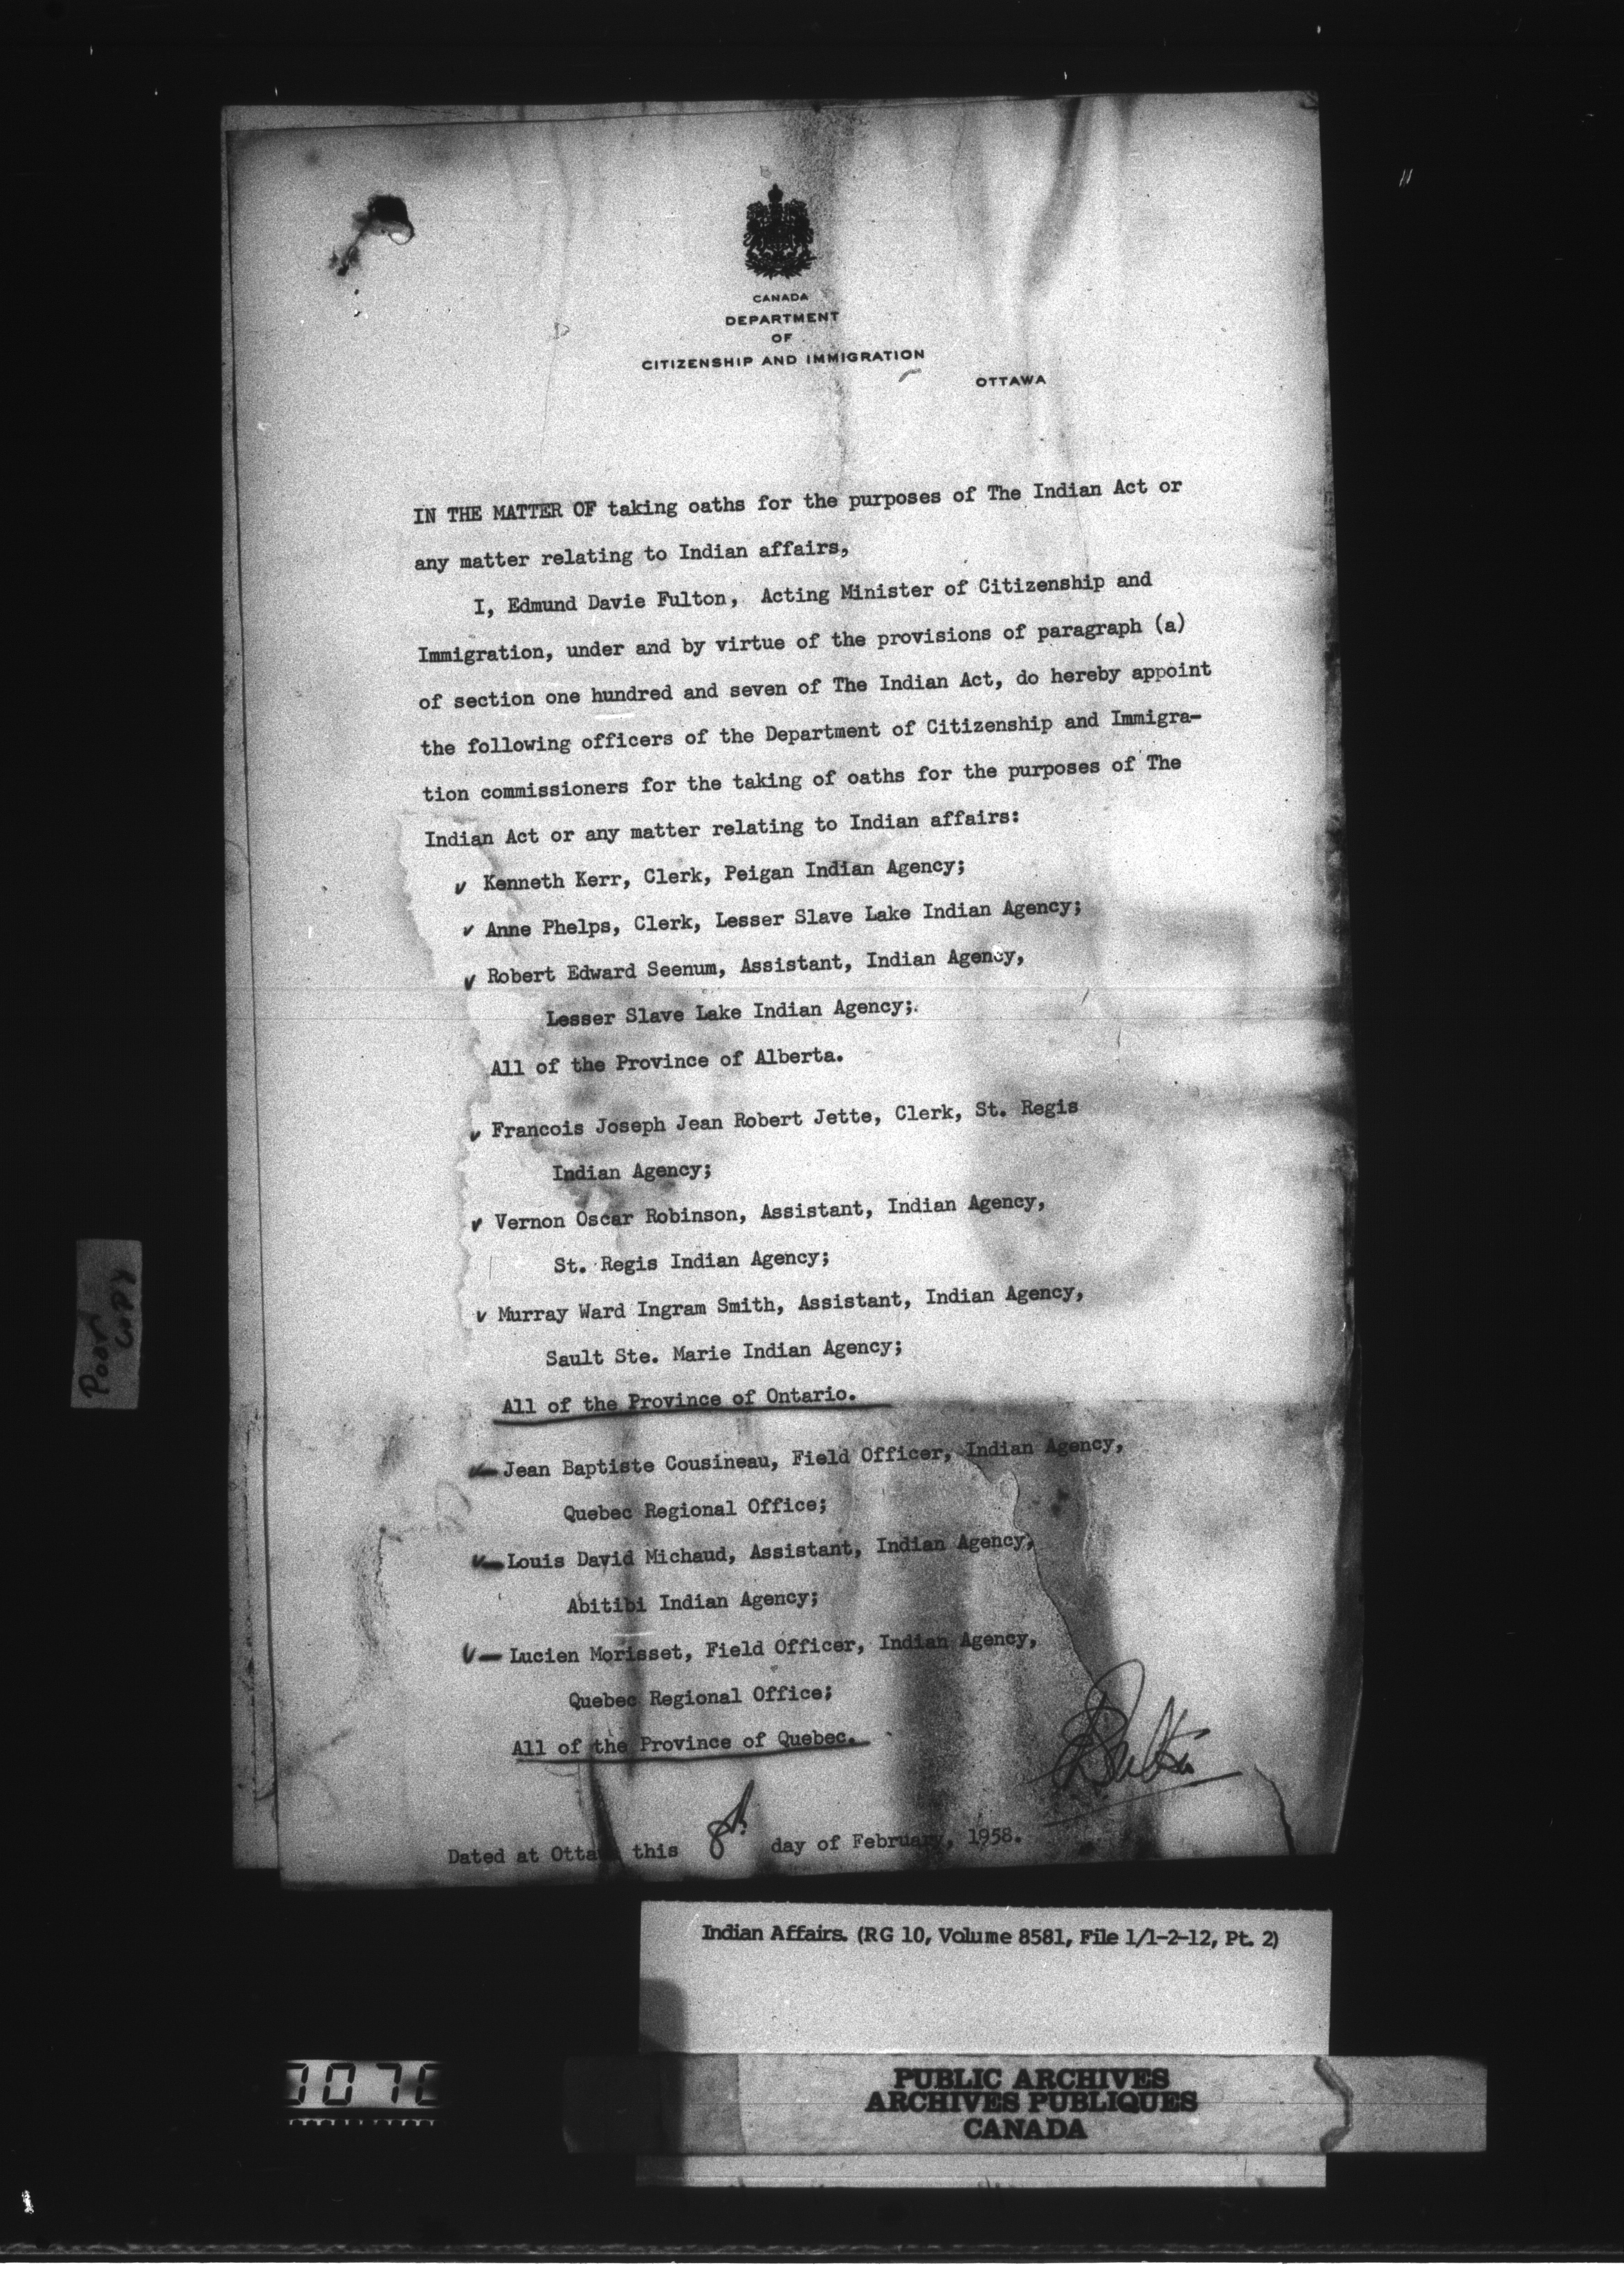 CANADA
DEPARTMENT
OF
CITIZENSHIP AND IMMIGRATION
OTTAWA
IN THE MATTER OF taking oaths for the purposes of The Indian Act or
any matter relating to Indian affairs,
I, Edmund Davie Fulton, Acting Minister of Citizenship and
Immigration, under and by virtue of the provisions of paragraph (a)
of section one hundred and seven of The Indian Act, do hereby appoint
the following officers of the Department of Citizenship and Immigra-
tion commissioners for the taking of oaths for the purposes of The
Indian Act or any matter relating to Indian affairs:
Kenneth Kerr, Clerk, Peigan Indian Agency;
Anne Phelps, Clerk, Lesser Slave Lake Indian Agency;
Robert Edward Seenum, Assistant, Indian Agency,
Lesser Slave Lake Indian Agency;
All of the Province of Alberta.
Francois Joseph Jean Robert Jette, Clerk, St. Regis
Indian Agency;
Vernon Oscar Robinson, Assistant, Indian Agency,
St. Regis Indian Agency;
Murray Ward Ingram Smith, Assistant, Indian Agency,
Sault Ste. Marie Indian Agency;
All of the Province of Ontario.
Jean Baptiste Cousineau, Field Officer, Indian Agency,
Quebec Regional Office;
Louis David Michaud, Assistant, Indian Agency,
Abitibi Indian Agency;
Lucien Morisset, Field Officer, Indian Agency,
Quebec Regional Office;
All of the Province of Quebec.
Dated at Ottawa this 8th day of February, 1958.
Poor
copy
Indian Affairs. (RG 10, Volume 8581, File 1/1-2-12, Pt. 2)
PUBLIC ARCHIVES
ARCHIVES PUBLIQUES
CANADA